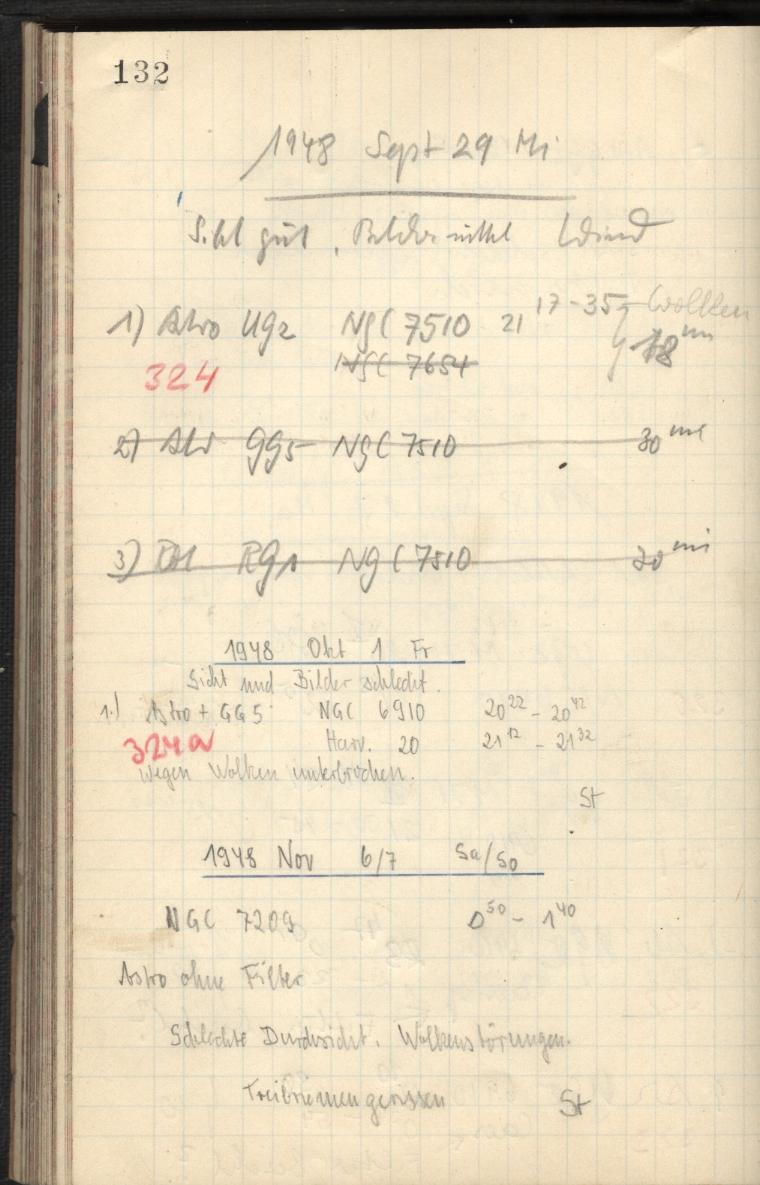 132
1948 Sept 29 Mi
Sicht gut, Bilder mittel Wind
1) Astro UG2 NGC 7510 21 17-35 Wolken
324 NGC 7654 18 m
2) Astro GG5 NGC 7510 30
3) RG1 NGC 7510 30
1948 Okt 1 Fr
Sicht und Bilder schlecht.
1.) Astro + GG5 NGC 6910 20 22 - 20 42
324a Harv. 20 21 12 - 21 32
Wegen Wolken unterbrochen.
St
1948 Nov 6/7 Sa/So
NGC 7209 0 50 - 1 40
Astro ohne Filter
Schlechte Durchsicht. Wolkenstörungen.
Treibriemen gerissen St